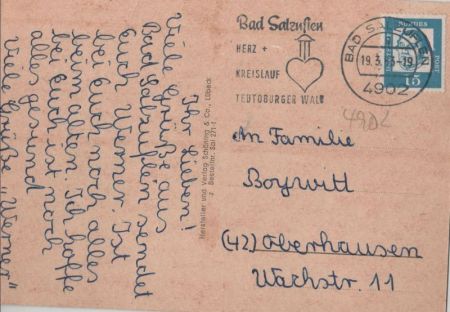 Ihr Lieben!
Viele Grüße aus
Bad Salzuflen sendet
Euch Werner. Ist
bei Euch noch alles
beim alten. Ich hoffe
bei Euch ist noch
alles gesund.
Viele Grüße „Werner"
Hersteller und Verlag Schöning & Co., Lübeck
Bestellnr. Sal 271
Bad Salzuflen
HERZ +
KREISLAUF
TEUTOBURGER WALD
BAD SALZUFLEN
19.3.
-19
4902
DEUTSCHE
BUNDES
POST
15
4902
An Familie
Boywitt
(42) Oberhausen
Wachstr. 11